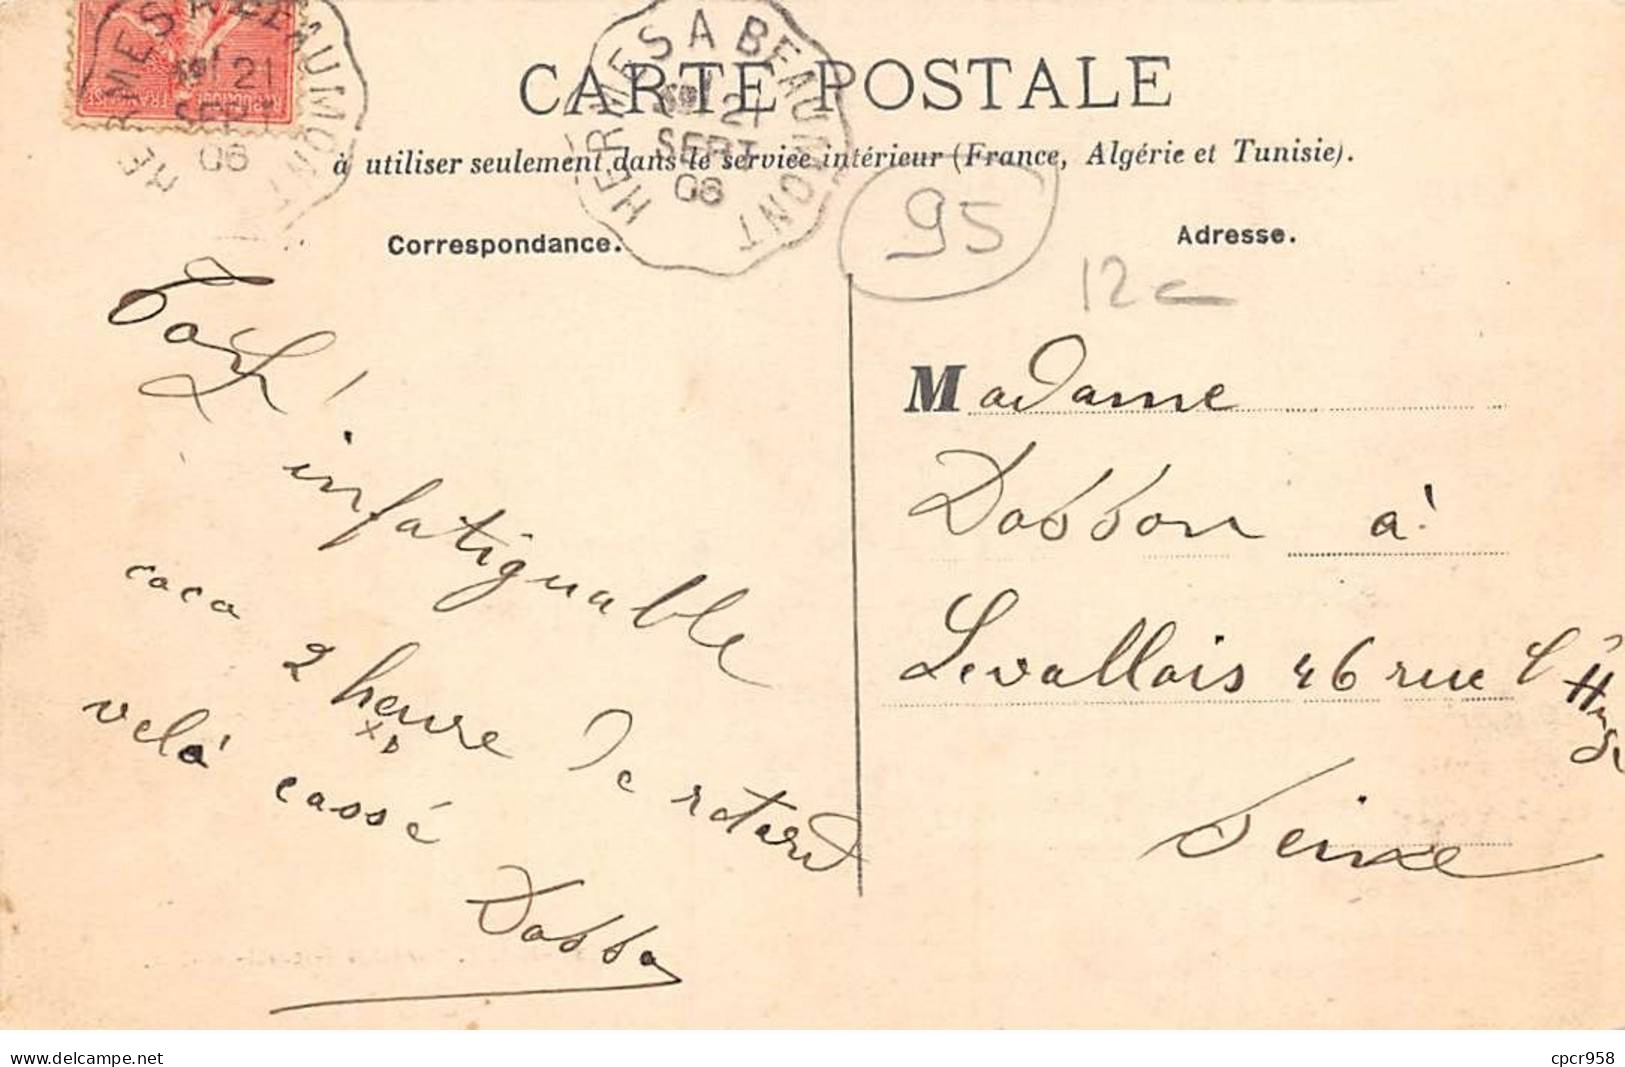 HERMES A BEAUMONT
21
SEPT
06
HERMES A BEAUMONT
21
SEPT
06
RÉPUBLIQUE FRANÇAISE
CARTE POSTALE
à utiliser seulement dans le service intérieur (France, Algérie et Tunisie).
95
Correspondance.
Adresse.
12c
infatiguable
caca 2 heure de retard
velo cassé
Dosso
Madame
Dosson à
Levallois 46 rue
Seine
www.delcampe.net
cpcr958